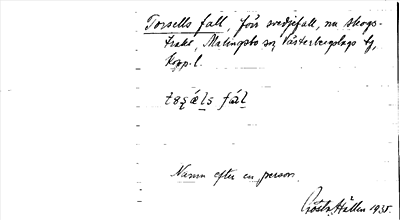 Torsells fall, förr svedjefall, nu skogs-
trakt, Malingsbo sn, Västerbergslags tg,
Kopp. l.
Namn efter en person.
Gösta Hallen 1935.